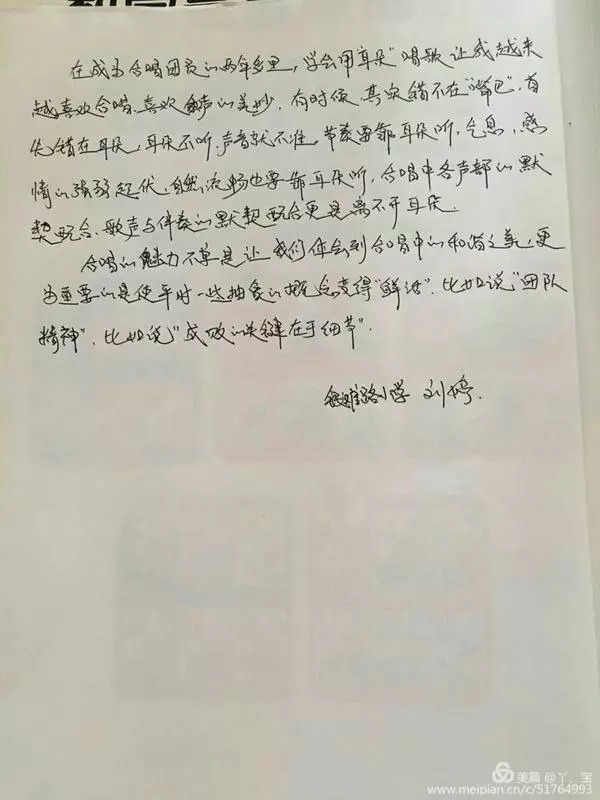 在成为合唱团员的两年多里，学会用耳朵"唱歌让我越来
越喜欢合唱、喜欢和声的美妙。有时候，其实错不在"嘴巴"，首
先错在耳朵，耳朵不听，声音就不准，节奏要靠耳朵听，气息、感
情的强弱起伏、自然流畅也要靠耳朵听，合唱中各声部的默
契配合、歌声与伴奏的默契配合更是离不开耳朵.
合唱的魅力不单是让我们体会到合唱中的和谐之美，更
为重要的是使平时一些抽象的概念变得"鲜活"．比如说"团队
精神"．比如说"成败的关键在于细节"．
路小学 刘婷.
美篇 @丫、宝
www.meipian.cn/c/51764993